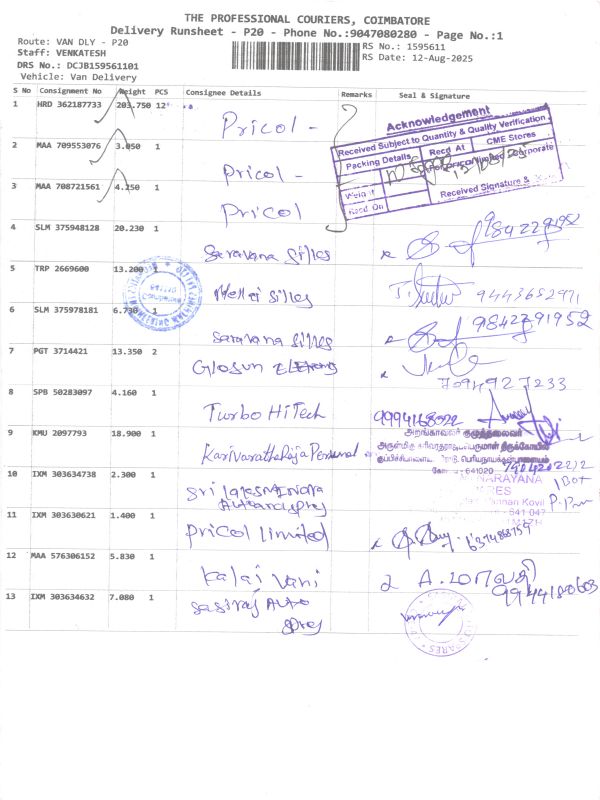 THE PROFESSIONAL COURIERS, COIMBATORE
Delivery Runsheet - P20 - Phone No.:9047080280 - Page No.:1
Route: VAN DLY - P20
RS No.: 1595611
Staff: VENKATESH
RS Date: 12-Aug-2025
DRS No.: DCJB159561101
Vehicle: Van Delivery
S No Consignment No Weight PCS Consignee Details Remarks Seal & Signature
1 HRD 362187733 203.750 12 Pricol -
Acknowledgement
Received Subject to Quantity & Quality Verification
Packing Details Recd At CME Stores
Weight
Recd On Received Signature &
2 MAA 709553076 3.050 1 Pricol -
3 MAA 708721561 4.250 1 Pricol
4 SLM 375948128 20.230 1 Saravana Silles 9842291952
5 TRP 2669600 13.200 1 Mellei Silles 9443652971
6 SLM 375978181 6.730 1 Saravana Silles 9842291952
7 PGT 3714421 13.350 2 Glosun 7094927233
8 SPB 50283097 4.160 1 Turbo HiTech
9 KMU 2097793 18.900 1 KariVarathaRaja Perumal
அறங்காவலர் குழுத்தலைவர்
கோவை - 641020
NARAYANA
641 047
10 IXM 303634738 2.300 1 Sri
11 IXM 303630621 1.400 1 Pricol Limited
12 MAA 576306152 5.830 1 Kalai Vani
13 IXM 303634632 7.080 1 Sasiraj Auto
Spres